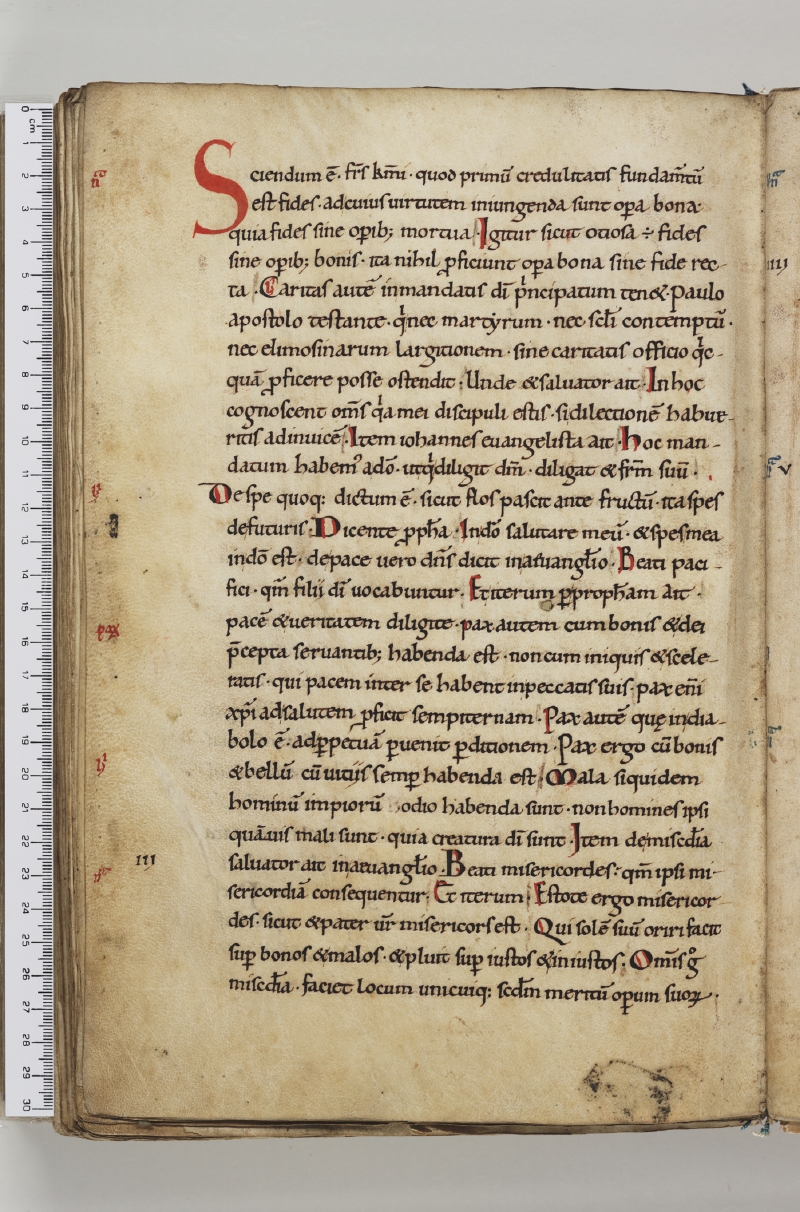 Sciendum ē· fr̄s km̄i· quod primū credulitatis fundam̄tū
est fides· ad cuius uirtutem iniungenda sunt op̄a bona·
quia fides sine op̄ib; mortua· Igitur sicut otiosa ÷ fides
sine op̄ib; bonis· ita nihil ꝓficiunt op̄a bona sine fide rec-
ta· Caritas autē in mandatis dī p̄ncipatum ten&· Paulo
apostolo testante· q̄ nec martyrum· nec scl̄i contemptū·
nec elimosinarum largitionem· sine caritatis officio q̄c-
quā ꝓficere posse ostendit· Unde & saluator ait· In hoc
cognoscent om̄s q̄a mei discipuli estis· si dilectionē habue-
ritis adinuicē· Item iohannes euangelista ait· Hoc man-
datum habem᷒ a dō· ut q̄ diligit dm̄· diligat & fr̄m suū·
De spe quoq; dictum ē· sicut flos pascit ante fructū· ita spes
de futuris· Dicente ꝓph̄a· In dō salutare meū· & spes mea
in dō est· de pace uero dn̄s dicit in aeuangl̄io· Beati paci-
fici· qm̄ filii dī uocabuntur· Et iterum ꝑ proph̄am ait·
pacē & ueritatem diligite· pax autem cum bonis & dei
p̄cepta seruantib; habenda est· non cum iniquis & scele-
ratis· qui pacem inter se habent in peccatis suis· pax eni̅
xp̄i ad salutem ꝓficit sempiternam· Pax autē quę in dia-
bolo ē· ad ꝑpetuā ꝑuenit ꝑditionem· Pax ergo cū bonis
& bellū cū uitiis semꝑ habenda est· Mala siquidem
hominū impiorū odio habenda sunt· non homines ipsi
quāuis mali sunt· quia creatura dī sunt· Item de misc̄dia
saluator ait in aeuangl̄io· Beati misericordes· qm̄ ipsi mi-
III
sericordiā consequentur· Et iterum· Estote ergo misericor
des· sicut & pater ur̄ misericors est· Qui solē suū oriri facit
suꝑ bonos & malos· & pluit suꝑ iustos & iniustos· Om̄is g̊
misc̄dia· faciet locum unicuiq; scdm̄ meritū oꝑum suoꝝ·